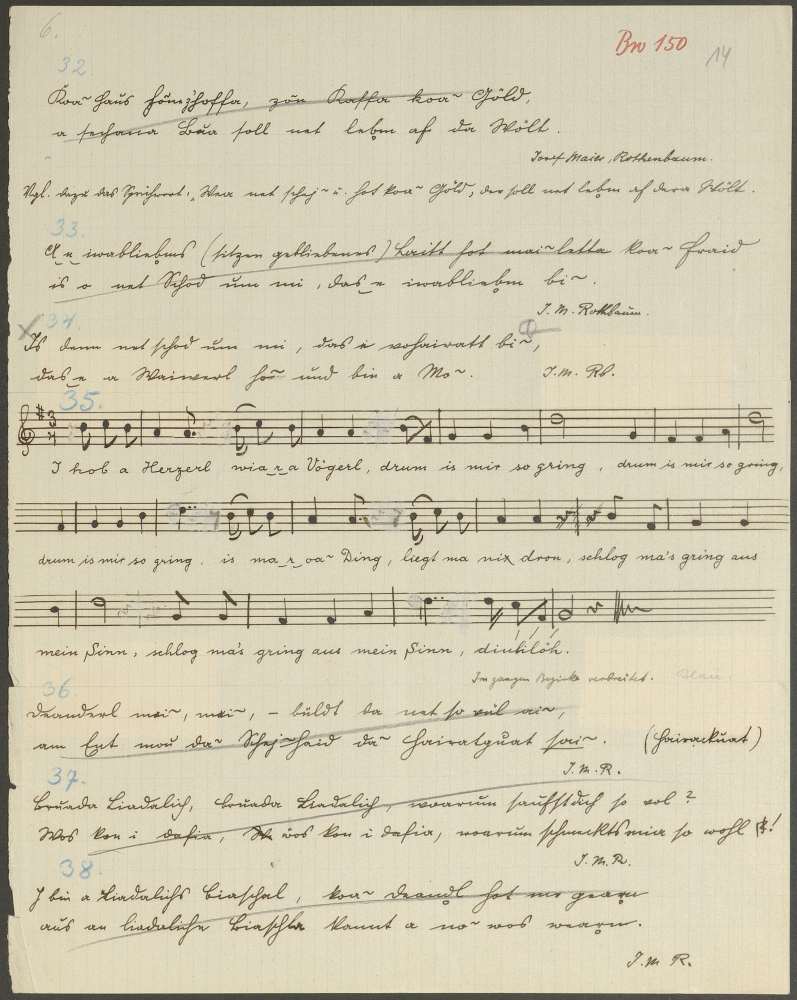 6.
Bw 150
14
32.
Koa~ Haus
zan Kassa koa~ Göld,
a Bua soll net lebm af da Wölt.
Josef Maier, Rothenbaum.
Vgl. dazu das Sprichwort: „Wea net schej~ u. hot koa~ Göld, der soll net lebm af dera Wölt.
33.
iwabliebms (sitzen gebliebenes) Laitt hot mai~ letta koa~ Fraid
is o net Schod um mi, das e iwabliebm bi~.
J. M. Rothbaum.
34.
Is denn net schod um mi, das e vohairatt bi~,
das e a Waiwerl ho~ und bin a Mo~.
J. M. Rb.
35.
I hob a Herzerl wia ra Vögerl, drum is mir so gring, drum is mir so gring,
drum is mir so gring. is ma r oa~ Ding, liegt ma nix dron, schlog ma's gring aus
mein Sinn, schlog ma's gring aus mein Sinn,
Im ganzen Bezirke verbreitet.
36.
Deanderl mei~, mei~, – büldt da net so vül ai~,
am End mou da~ Schej~haid da~ Hairatguat sai~. (Hairackuat)
J. M. R.
37.
Bruada Liadalich, bruada Liadalich, woarum saufst dich so vol?
Wos kon i dafia, wos kon i dafia, woarum schmeckts mia so wohl!
J. M. R.
38.
I bin a Liadalichs Biaschal, koa~ Deandl hot me gearn
aus an liadaliche Biaschla kannt a no~ wos wearn.
J. M. R.